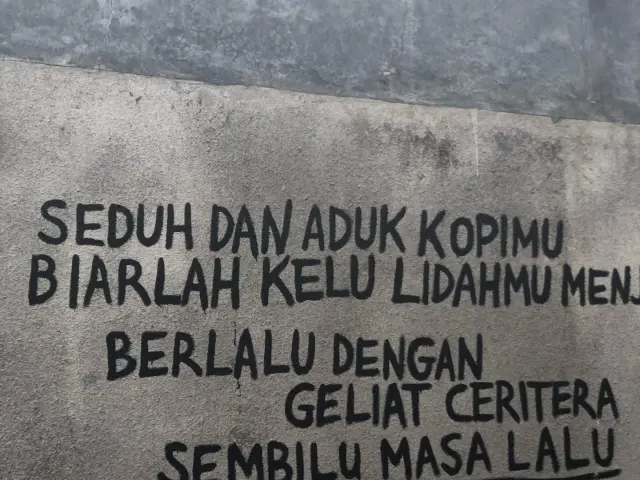 SEDUH DAN ADUK KOPIMU
BIARLAH KELU LIDAHMU MENJ
BERLALU DENGAN
GELIAT CERITERA
SEMBILU MASA LALU